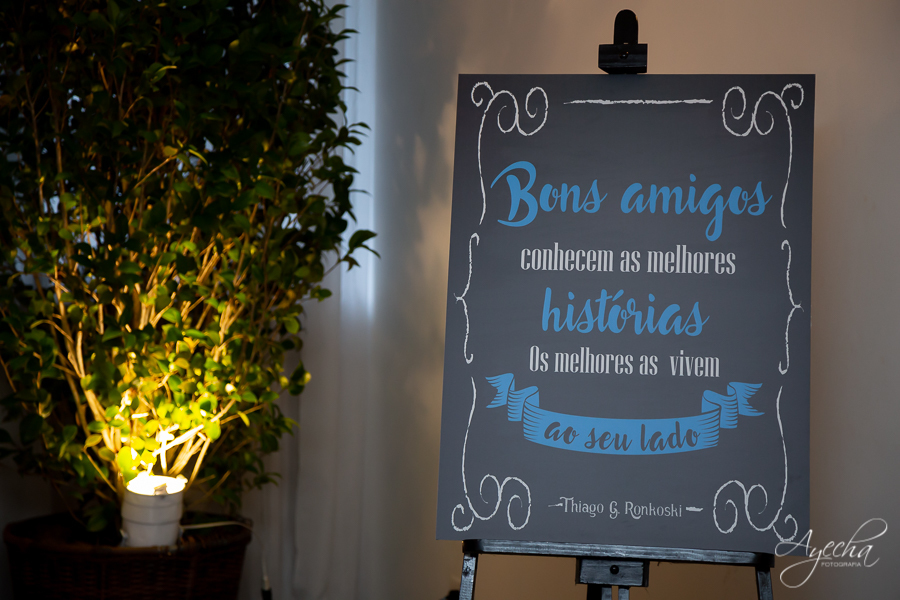 Bons amigos
conhecem as melhores
histórias
Os melhores as vivem
ao seu lado
Thiago G. Ronkoski
Ayecha
FOTOGRAFIA